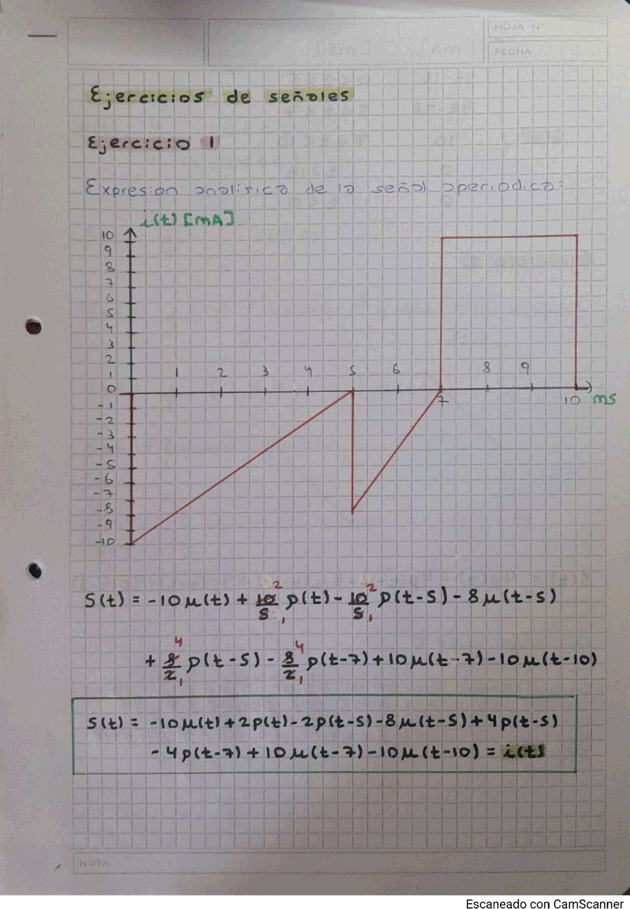 HOJA N°
FECHA
Ejercicios de señales
Ejercicio 1
Expresión analítica de la señal aperiódica:
i(t) [mA]
10
9
8
7
6
5
4
3
2
1
0
-1
-2
-3
-4
-5
-6
-7
-8
-9
-10
1 2 3 4 5 6 8 9
7 10 ms
S(t) = -10μ(t) + 10/5 2/1 ρ(t) - 10/5 2/1 ρ(t-5) - 8μ(t-5)
+ 8/2 4/1 ρ(t-5) - 8/2 4/1 ρ(t-7) + 10μ(t-7) - 10μ(t-10)
S(t) = -10μ(t) + 2ρ(t) - 2ρ(t-5) - 8μ(t-5) + 4ρ(t-5)
- 4ρ(t-7) + 10μ(t-7) - 10μ(t-10) = i(t)
NOTA
Escaneado con CamScanner